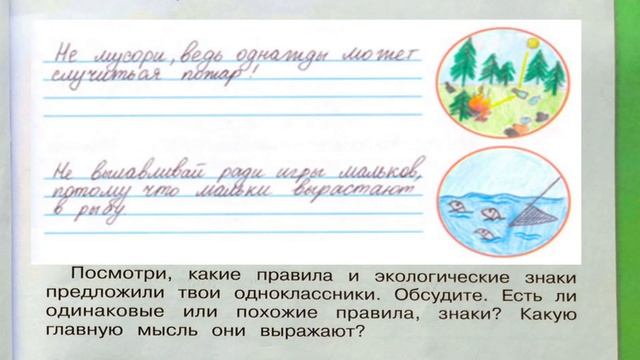 Не мусори, ведь однажды может
случиться пожар!
Не вылавливай ради игры мальков,
потому что мальки вырастают
в рыбу.
Посмотри, какие правила и экологические знаки
предложили твои одноклассники. Обсудите. Есть ли
одинаковые или похожие правила, знаки? Какую
главную мысль они выражают?